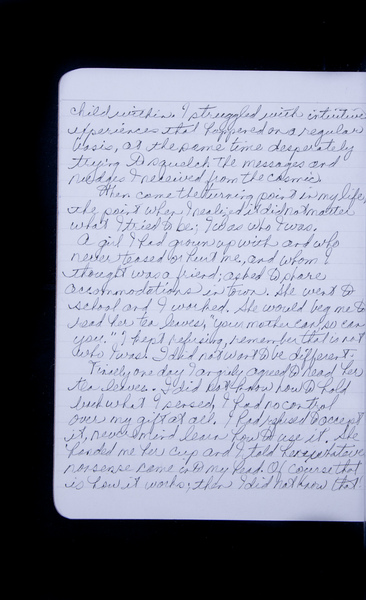 child within. I struggled with intuitive
experiences that happened on a regular
basis, at the same time desperately
trying to squelch the messages and
nudges I received from the cosmic
Then came the turning point in my life,
the point when I realized it did not matter
what I tried to be; I was who I was.
A girl I had grown up with and who
never teased or hurt me, and whom I
thought was a friend; asked to share
accommodations in town. She went to
school and I worked. She would beg me to
read her tea leaves, "your mother can, so can
you." I kept refusing, remember that is not
who I was. I did not want to be different.
Finely one day I angrily agreed to read her
tea leaves. I did not know how to hold
back what I sensed, I had no control
over my gift at all. I had refused to accept
it, never mind learn how to use it. She
handed me her cup and I told her whatever
nonsense came into my head. Of course that
is how it works; then I did not know that